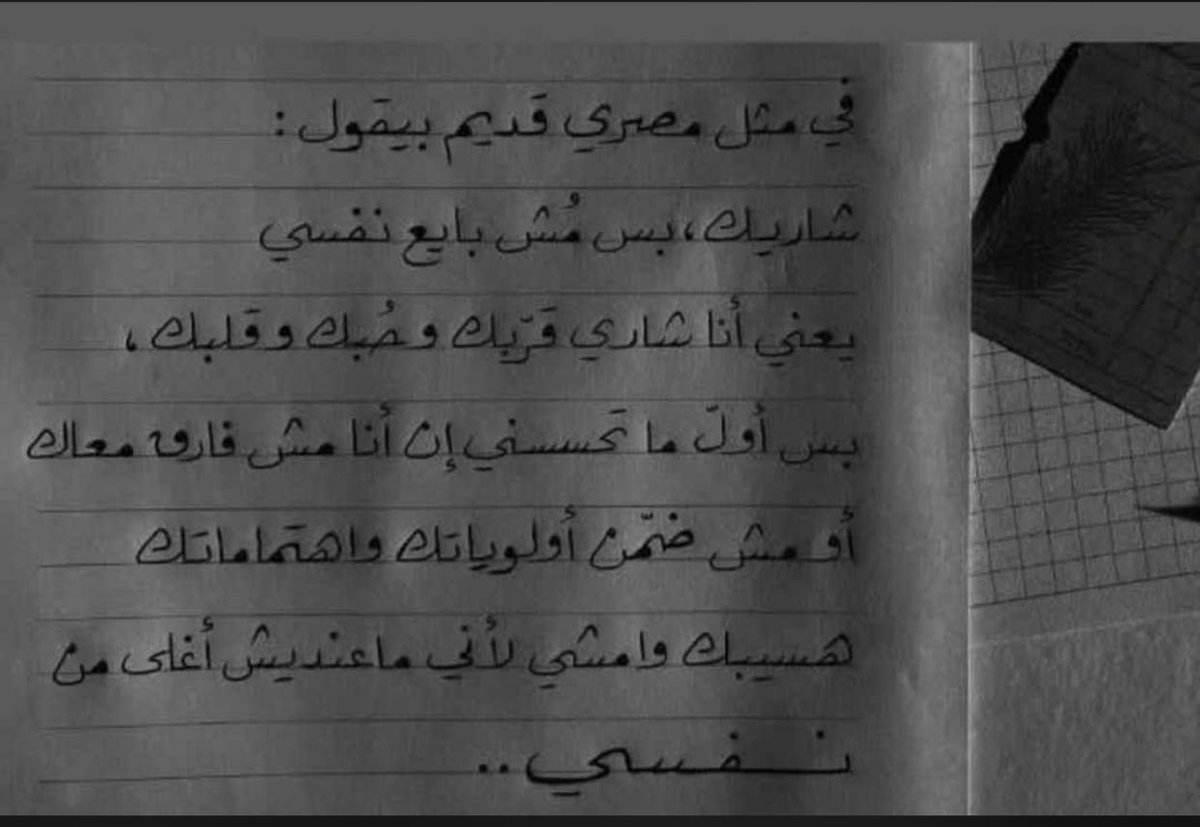 في مثل مصري قديم بيقول :
شاريك، بس مُش بايع نفسي
يعني أنا شاري قرّبك وحُبك وقلبك ،
بس أولّ ما تَحسسني إن أنا مش فارق معاك
أو مش ضمّن أولوياتك واهتماماتك
هسيبك وامشي لأني ماعنديش أغلى من
نفسي ..